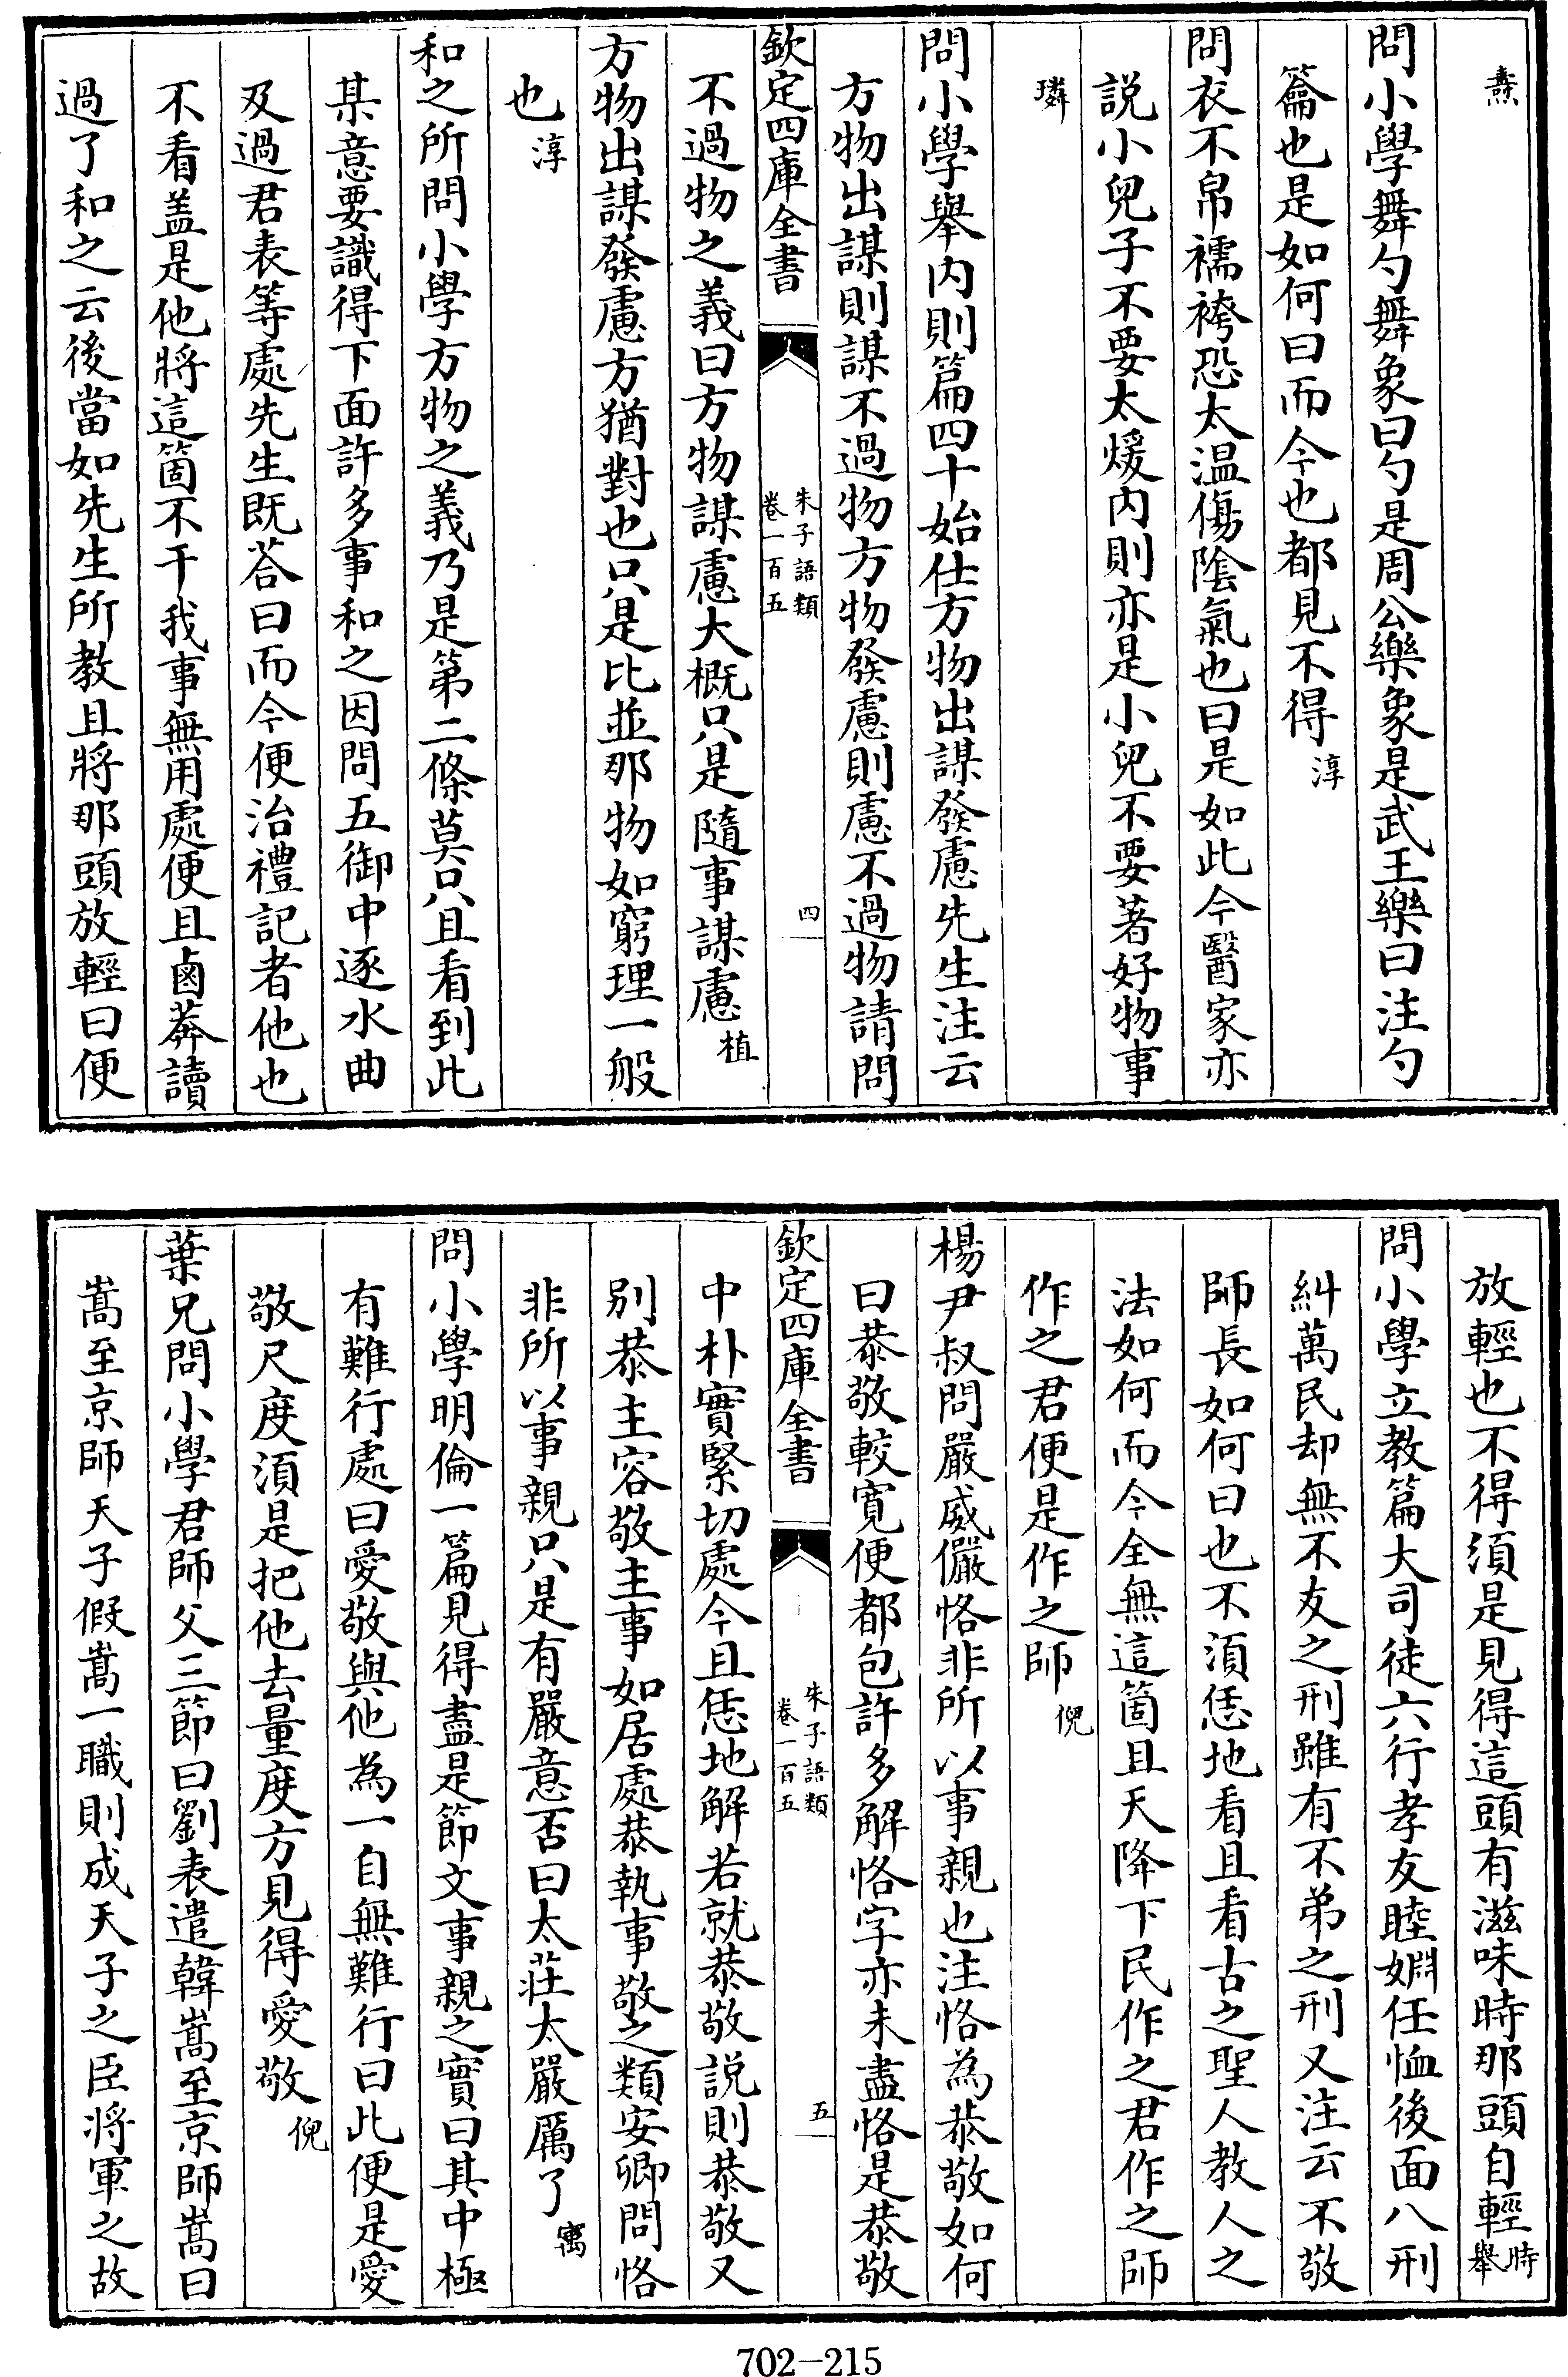 燾
問小學舞勺舞象曰勺是周公樂象是武王樂曰注勺
籥也是如何曰而今也都見不得淳
問衣不帛襦袴恐太温傷陰氣也曰是如此今醫家亦
説小兒子不要太煖内則亦是小兒不要著好物事
璘
問小學舉内則篇四十始仕方物出謀發慮先生注云
方物出謀則謀不過物方物發慮則慮不過物請問
欽定四庫全書
朱子語類
卷一百五
四
不過物之義曰方物謀慮大概只是隨事謀慮植
方物出謀發慮方猶對也只是比並那物如窮理一般
也淳
和之所問小學方物之義乃是第二條莫只且看到此
某意要識得下面許多事和之因問五御中逐水曲
及過君表等處先生既荅曰而今便治禮記者他也
不看盖是他將這箇不干我事無用處便且鹵莽讀
過了和之云後當如先生所教且將那頭放輕曰便
放輕也不得須是見得這頭有滋味時那頭自輕時舉
問小學立教篇大司徒六行孝友睦婣任恤後面八刑
糾萬民却無不友之刑雖有不弟之刑又注云不敬
師長如何曰也不須恁地看且看古之聖人教人之
法如何而今全無這箇且天降下民作之君作之師
作之君便是作之師倪
楊尹叔問嚴威儼恪非所以事親也注恪為恭敬如何
曰恭敬較寛便都包許多解恪字亦未盡恪是恭敬
欽定四庫全書
朱子語類
卷一百五
五
中朴實緊切處今且恁地解若就恭敬説則恭敬又
别恭主容敬主事如居處恭執事敬之類安卿問恪
非所以事親只是有嚴意否曰太莊太嚴厲了㝢
問小學明倫一篇見得盡是節文事親之實曰其中極
有難行處曰愛敬與他為一自無難行曰此便是愛
敬尺度湏是把他去量度方見得愛敬倪
葉兄問小學君師父三節曰劉表遣韓嵩至京師嵩曰
嵩至京師天子假嵩一職則成天子之臣將軍之故
702-215